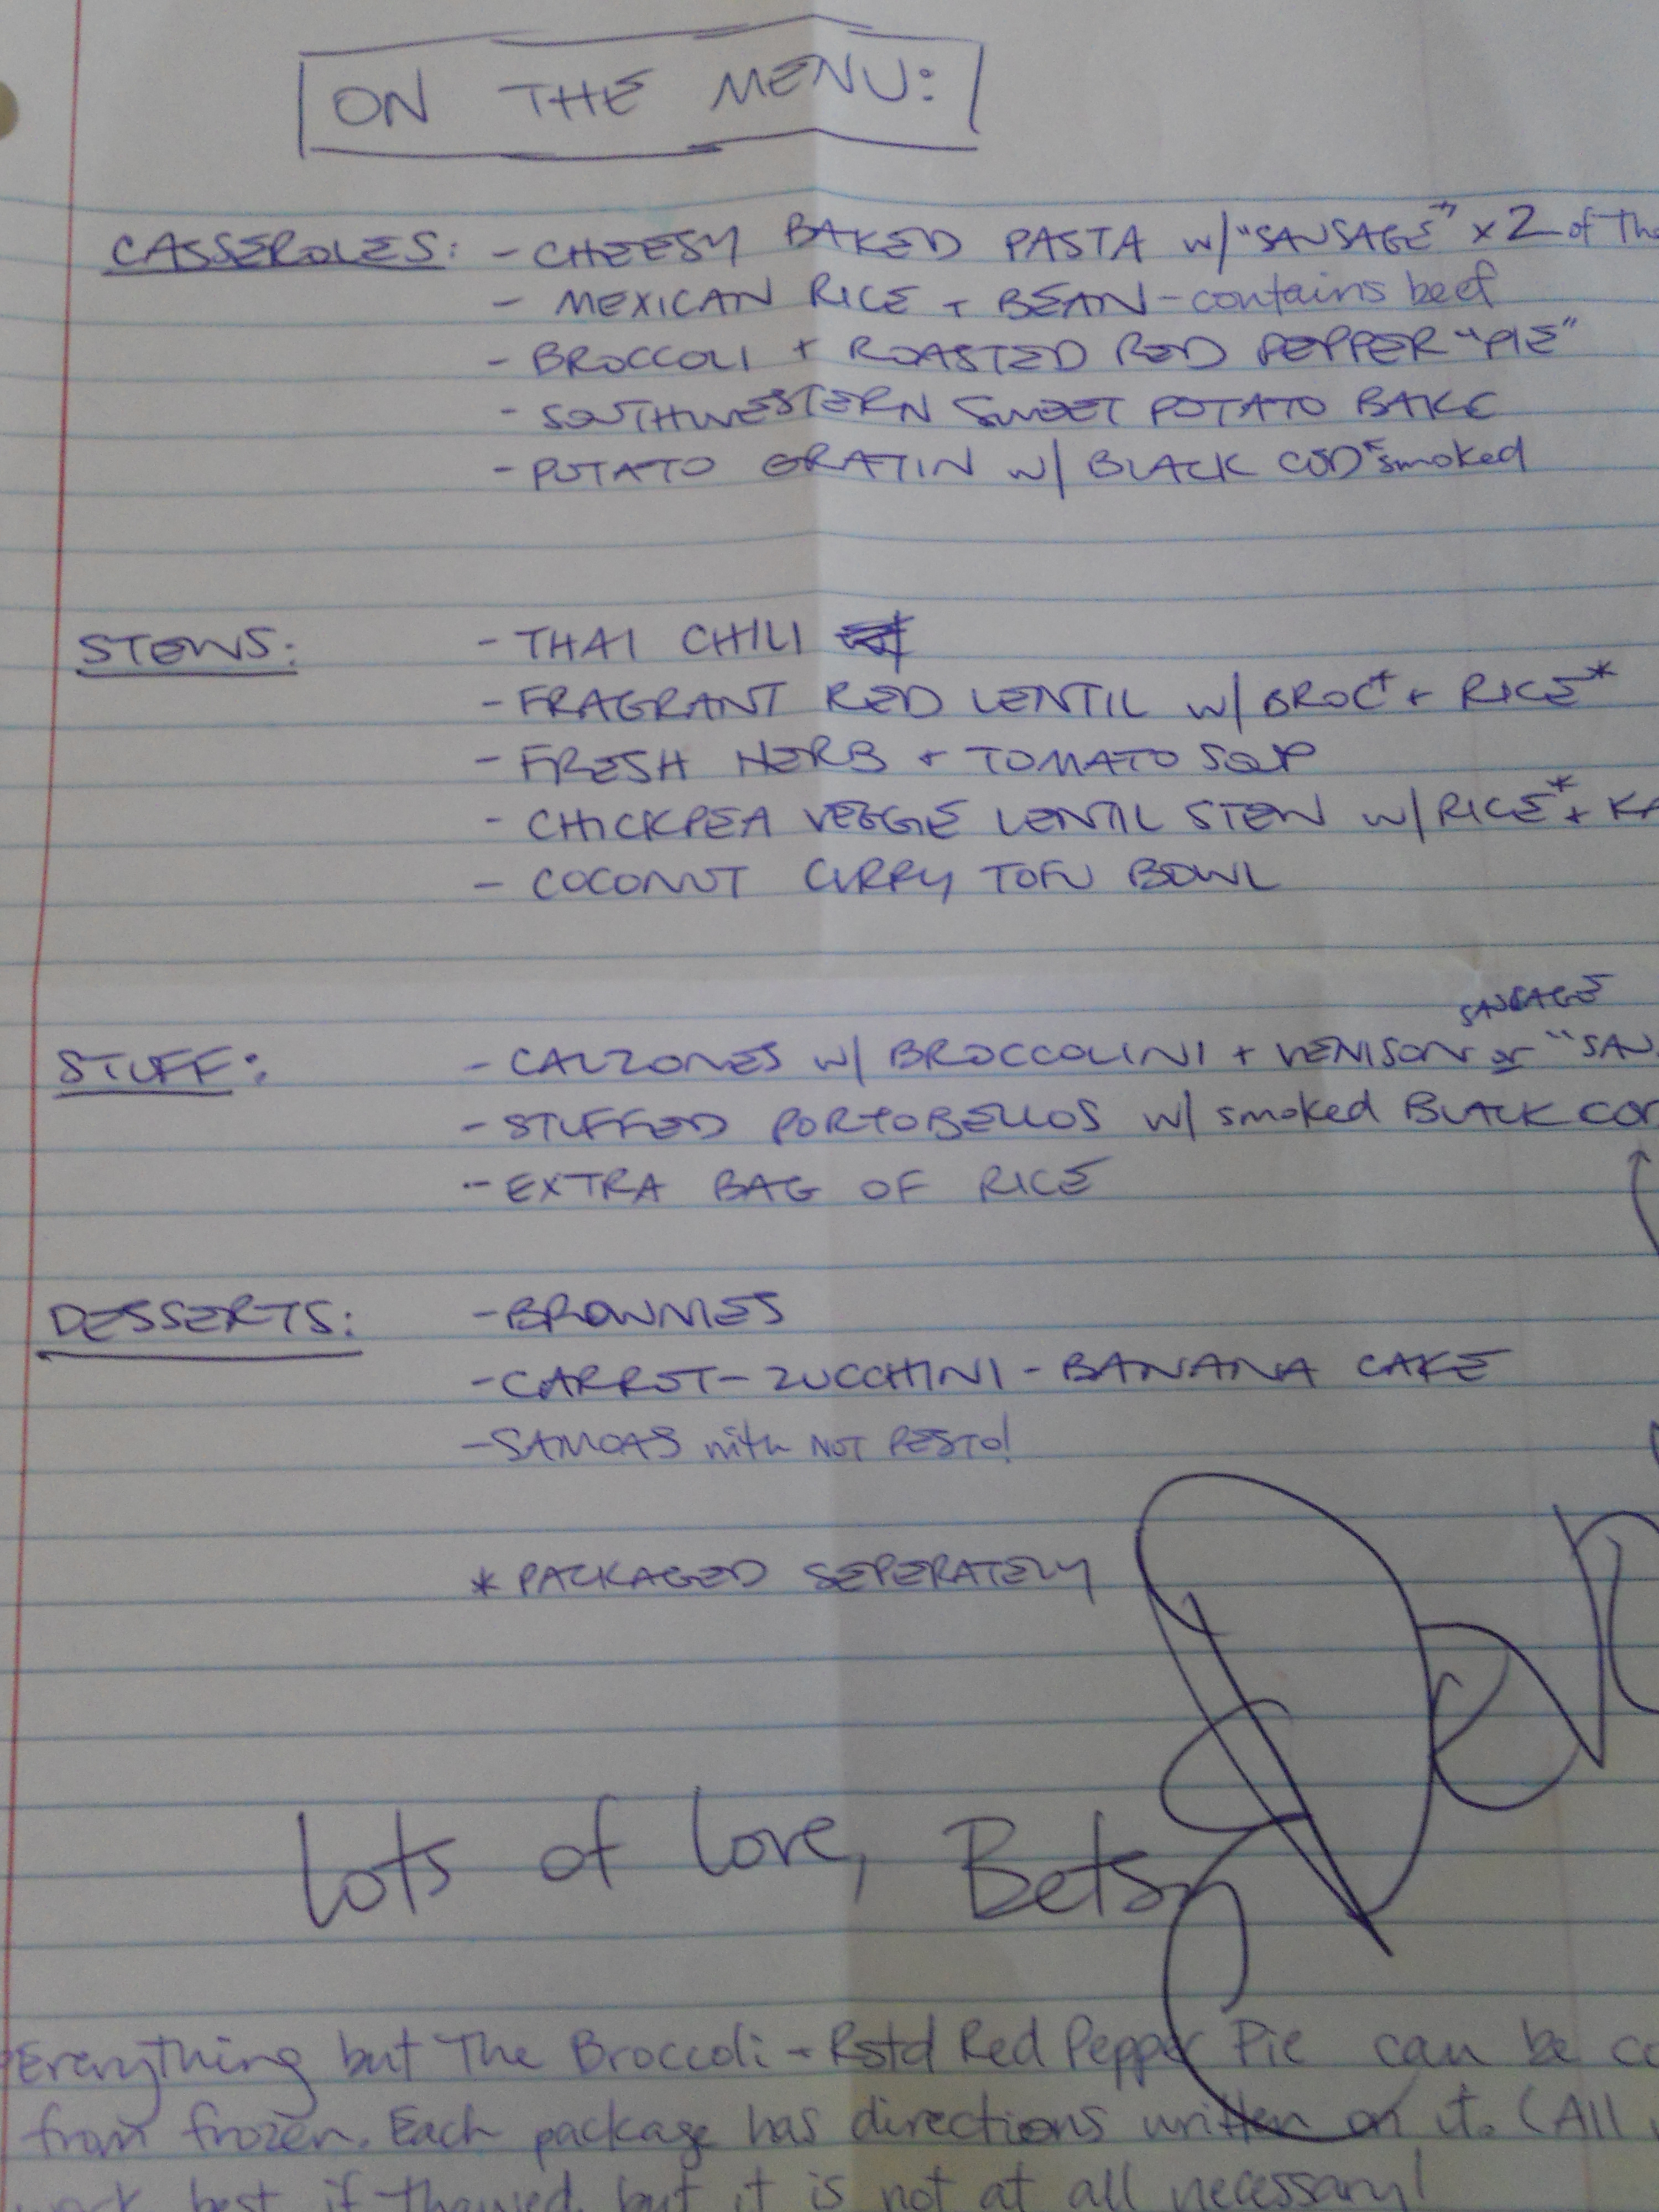 ON THE MENU:
CASSEROLES: - CHEESY BAKED PASTA w/ "SAUSAGE" x2 of The
- MEXICAN RICE + BEAN - contains beef
- BROCCOLI + ROASTED RED PEPPER "PIE"
- SOUTHWESTERN SWEET POTATO BAKE
- POTATO GRATIN w/ BLACK COD smoked
STEWS: - THAI CHILI
- FRAGRANT RED LENTIL w/ BROC* + RICE*
- FRESH HERB + TOMATO SOUP
- CHICKPEA VEGGIE LENTIL STEW w/ RICE* + KA
- COCONUT CURRY TOFU BOWL
SAUSAGE
STUFF: - CALZONES w/ BROCCOLINI + VENISON or "SAU
- STUFFED PORTOBELLOS w/ smoked BLACK COD
- EXTRA BAG OF RICE
DESSERTS: - BROWNIES
- CARROT - ZUCCHINI - BANANA CAKE
- SAMOAS with NOT PESTO!
* PACKAGED SEPERATELY
Lots of love, Betsy
Everything but The Broccoli - Rstd Red Pepper Pie can be co
from frozen. Each package has directions written on it. (All
work best if thawed, but it is not at all necessary!